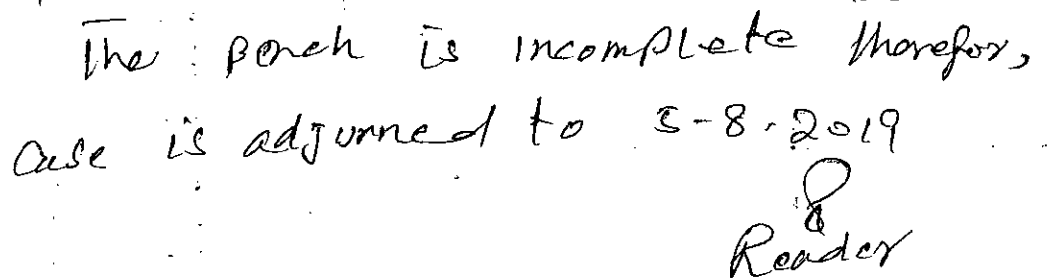 The Bench is incomplete therefor,
case is adjurned to 5-8-2019
Reader